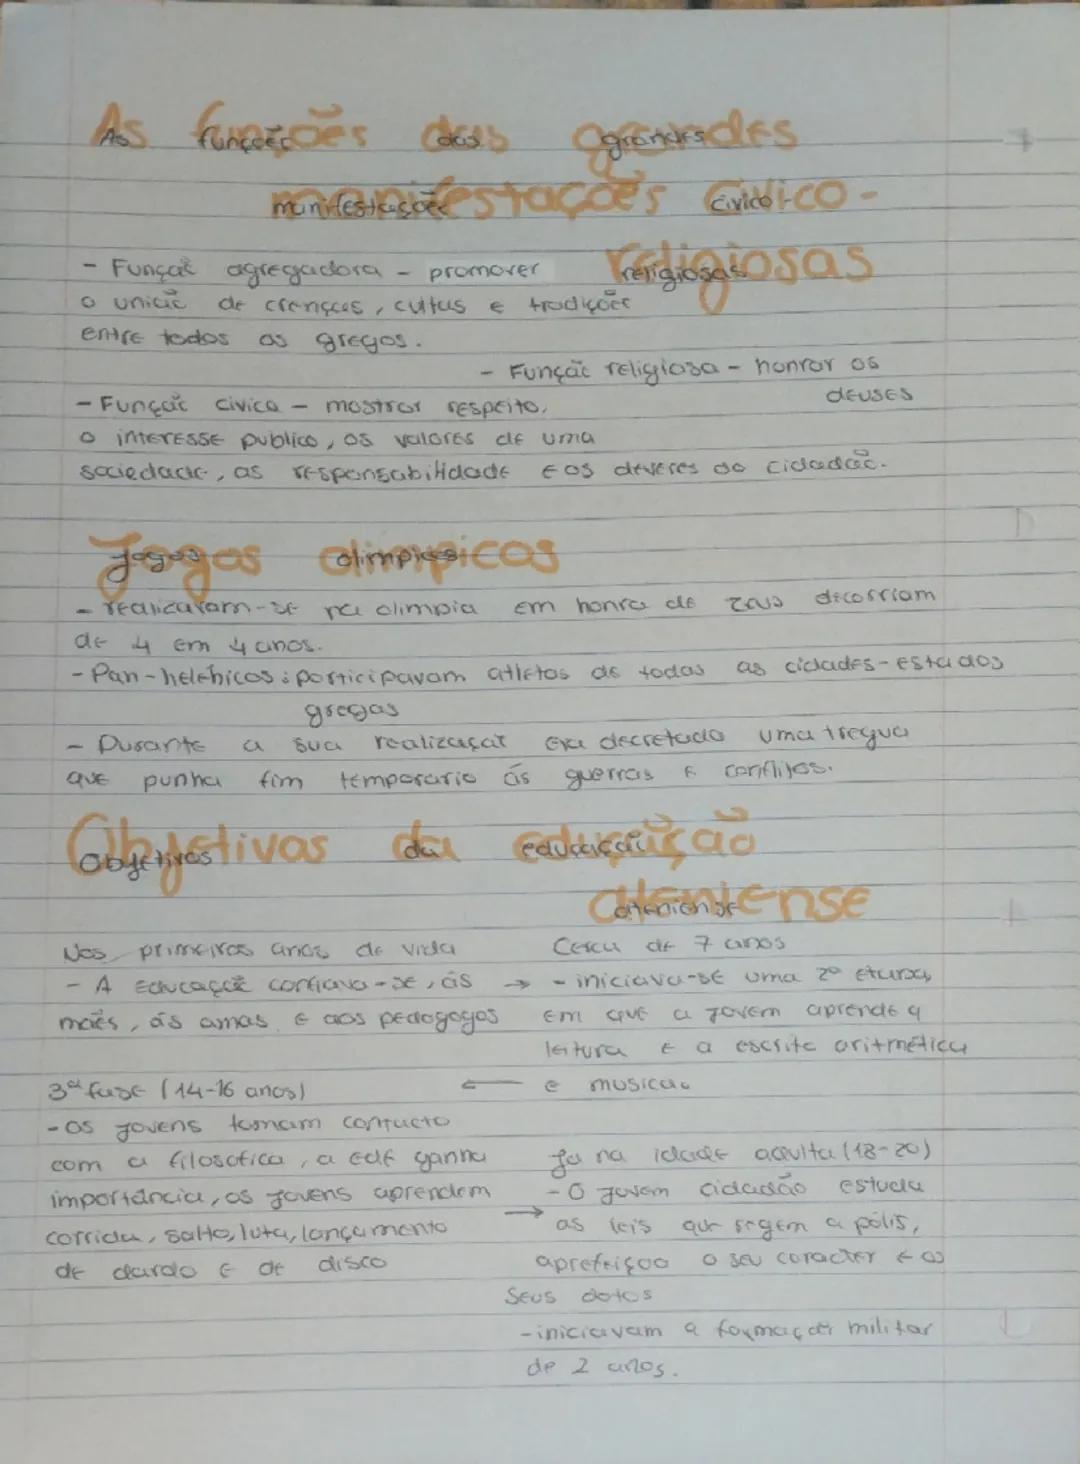 As funções das grandes
manifestações cívico-
religiosas
- Função agregadora - promover
o união de crenças, cultus e tradições
entre todos os gregos.
- Função religiosa - honrar os
deuses
- Função civica - mostrar respeito,
o interesse publico, os valores de uma
sociedade, as responsabilidade e os deveres do cidadão.
Jogos olimpicos
- realizavam-se na olimpia em honra de zeus decorriam
de 4 em 4 anos.
- Pan-helénicos: participavam atletas de todas as cidades-estados
gregas
- Durante a sua realização era decretada uma tregua
que punha fim temporario ás guerras e conflitos.
Objetivos da educação
ateniense
Nos primeiros anos de vida
- A Educação confiava-se, ás
mães, ás amas e aos pedagogos
Cerca de 7 anos
→ - iniciava-se uma 2º etapa,
em que a jovem aprende q
leitura e a escrita aritmética
e musica.
←
3ª fase (14-16 anos)
- os jovens tomam contacto
com a filosofica, a edf ganha
importância, os jovens aprendem
corrida, salto, luta, lançamento
de dardo e de disco
Ja na idade aduita (18-20)
→ - O jovem cidadão estuda
as leis que regem a polis,
aprefeiçoo o seu caracter e os
seus dotes
- iniciavam a formação militar
de 2 anos.